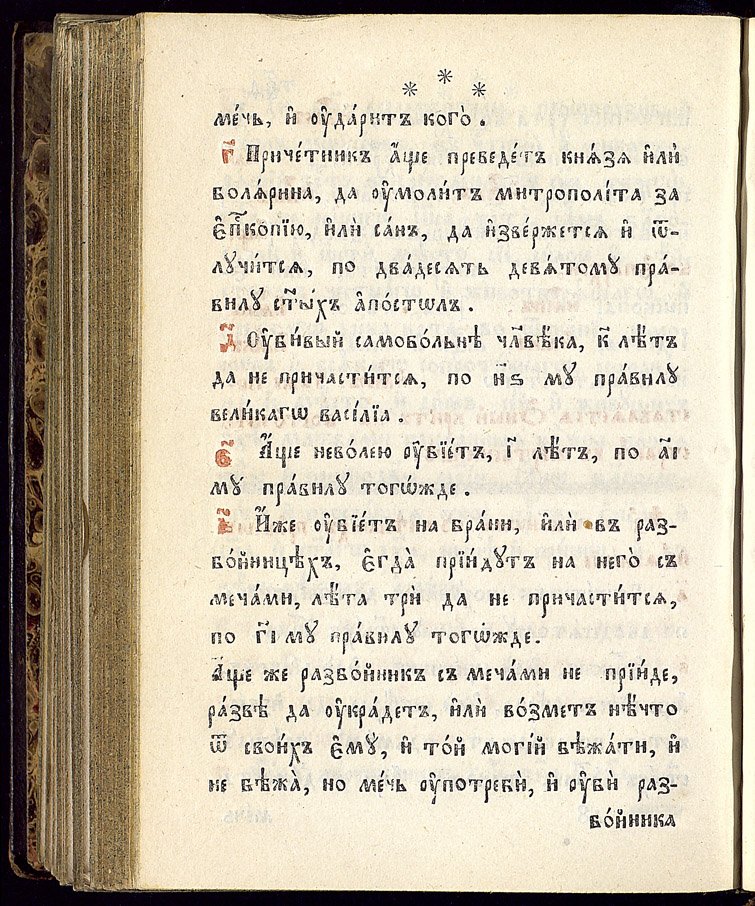 * * *
ме́чь, и҆ ᲂу҆да́ритъ кого̀ .
г҃ Приче́тникъ а҆́ще преведе́тъ кнѧ́зѧ и҆лѝ
болѧ́рина, да ᲂу҆моли́тъ митрополі́та за
є҆пⷭ҇копїю, и҆лѝ са́нъ, да и҆зве́ржетсѧ и҆ ѿ-
лꙋчи́тсѧ, по два́десѧть девѧ́томꙋ пра́-
вилꙋ ст҃ы́хъ а҆по́стѡлъ .
д҃ Оу҆би́вый самово́льнѣ чл҃вѣ́ка, к҃ лѣ́тъ
да не причасти́тсѧ, по н҃ѕ мꙋ пра́вилꙋ
вели́кагѡ васі́лїа .
є҃ А҆́ще нево́лею ᲂу҆бїе́тъ, і҃ лѣ́тъ, по а҃і
мꙋ пра́вилꙋ тогѡ́жде .
ѕ҃ И҆́же ᲂу҆бїе́тъ на бра́ни, и҆лѝ въ раз-
бо́йницѣхъ, є҆гда̀ прїи́дꙋтъ на него съ
меча́ми, лѣ́та трѝ да не причасти́тсѧ,
по г҃і мꙋ пра́вилꙋ тогѡ́жде.
А҆́ще же разбо́йникъ съ меча́ми не прїи́де,
ра́звѣ да ᲂу҆кра́детъ, и҆лѝ во́зметъ нѣ́что
ѿ свои́хъ є҆мꙋ̀, и҆ то́й могі́й бѣжа́ти, и҆
не бѣжа̀, но ме́чь ᲂу҆потребѝ, и҆ ᲂу҆бѝ раз-
бо́йника